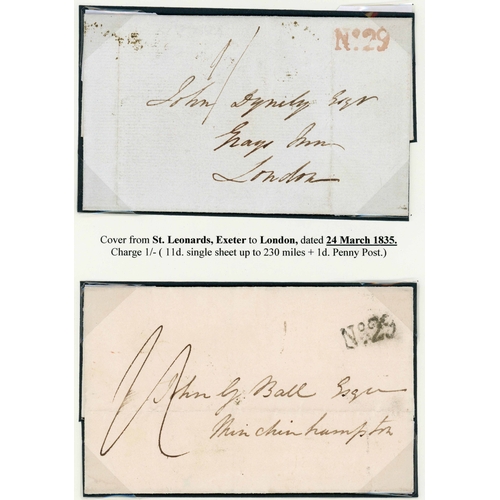 No. 29
1/-
John Dynely Esqr
Grays Inn
London
Cover from St. Leonards, Exeter to London, dated 24 March 1835.
Charge 1/- ( 11d. single sheet up to 230 miles + 1d. Penny Post.)
No. 29
John G. Ball Esqr
Minchinhampton